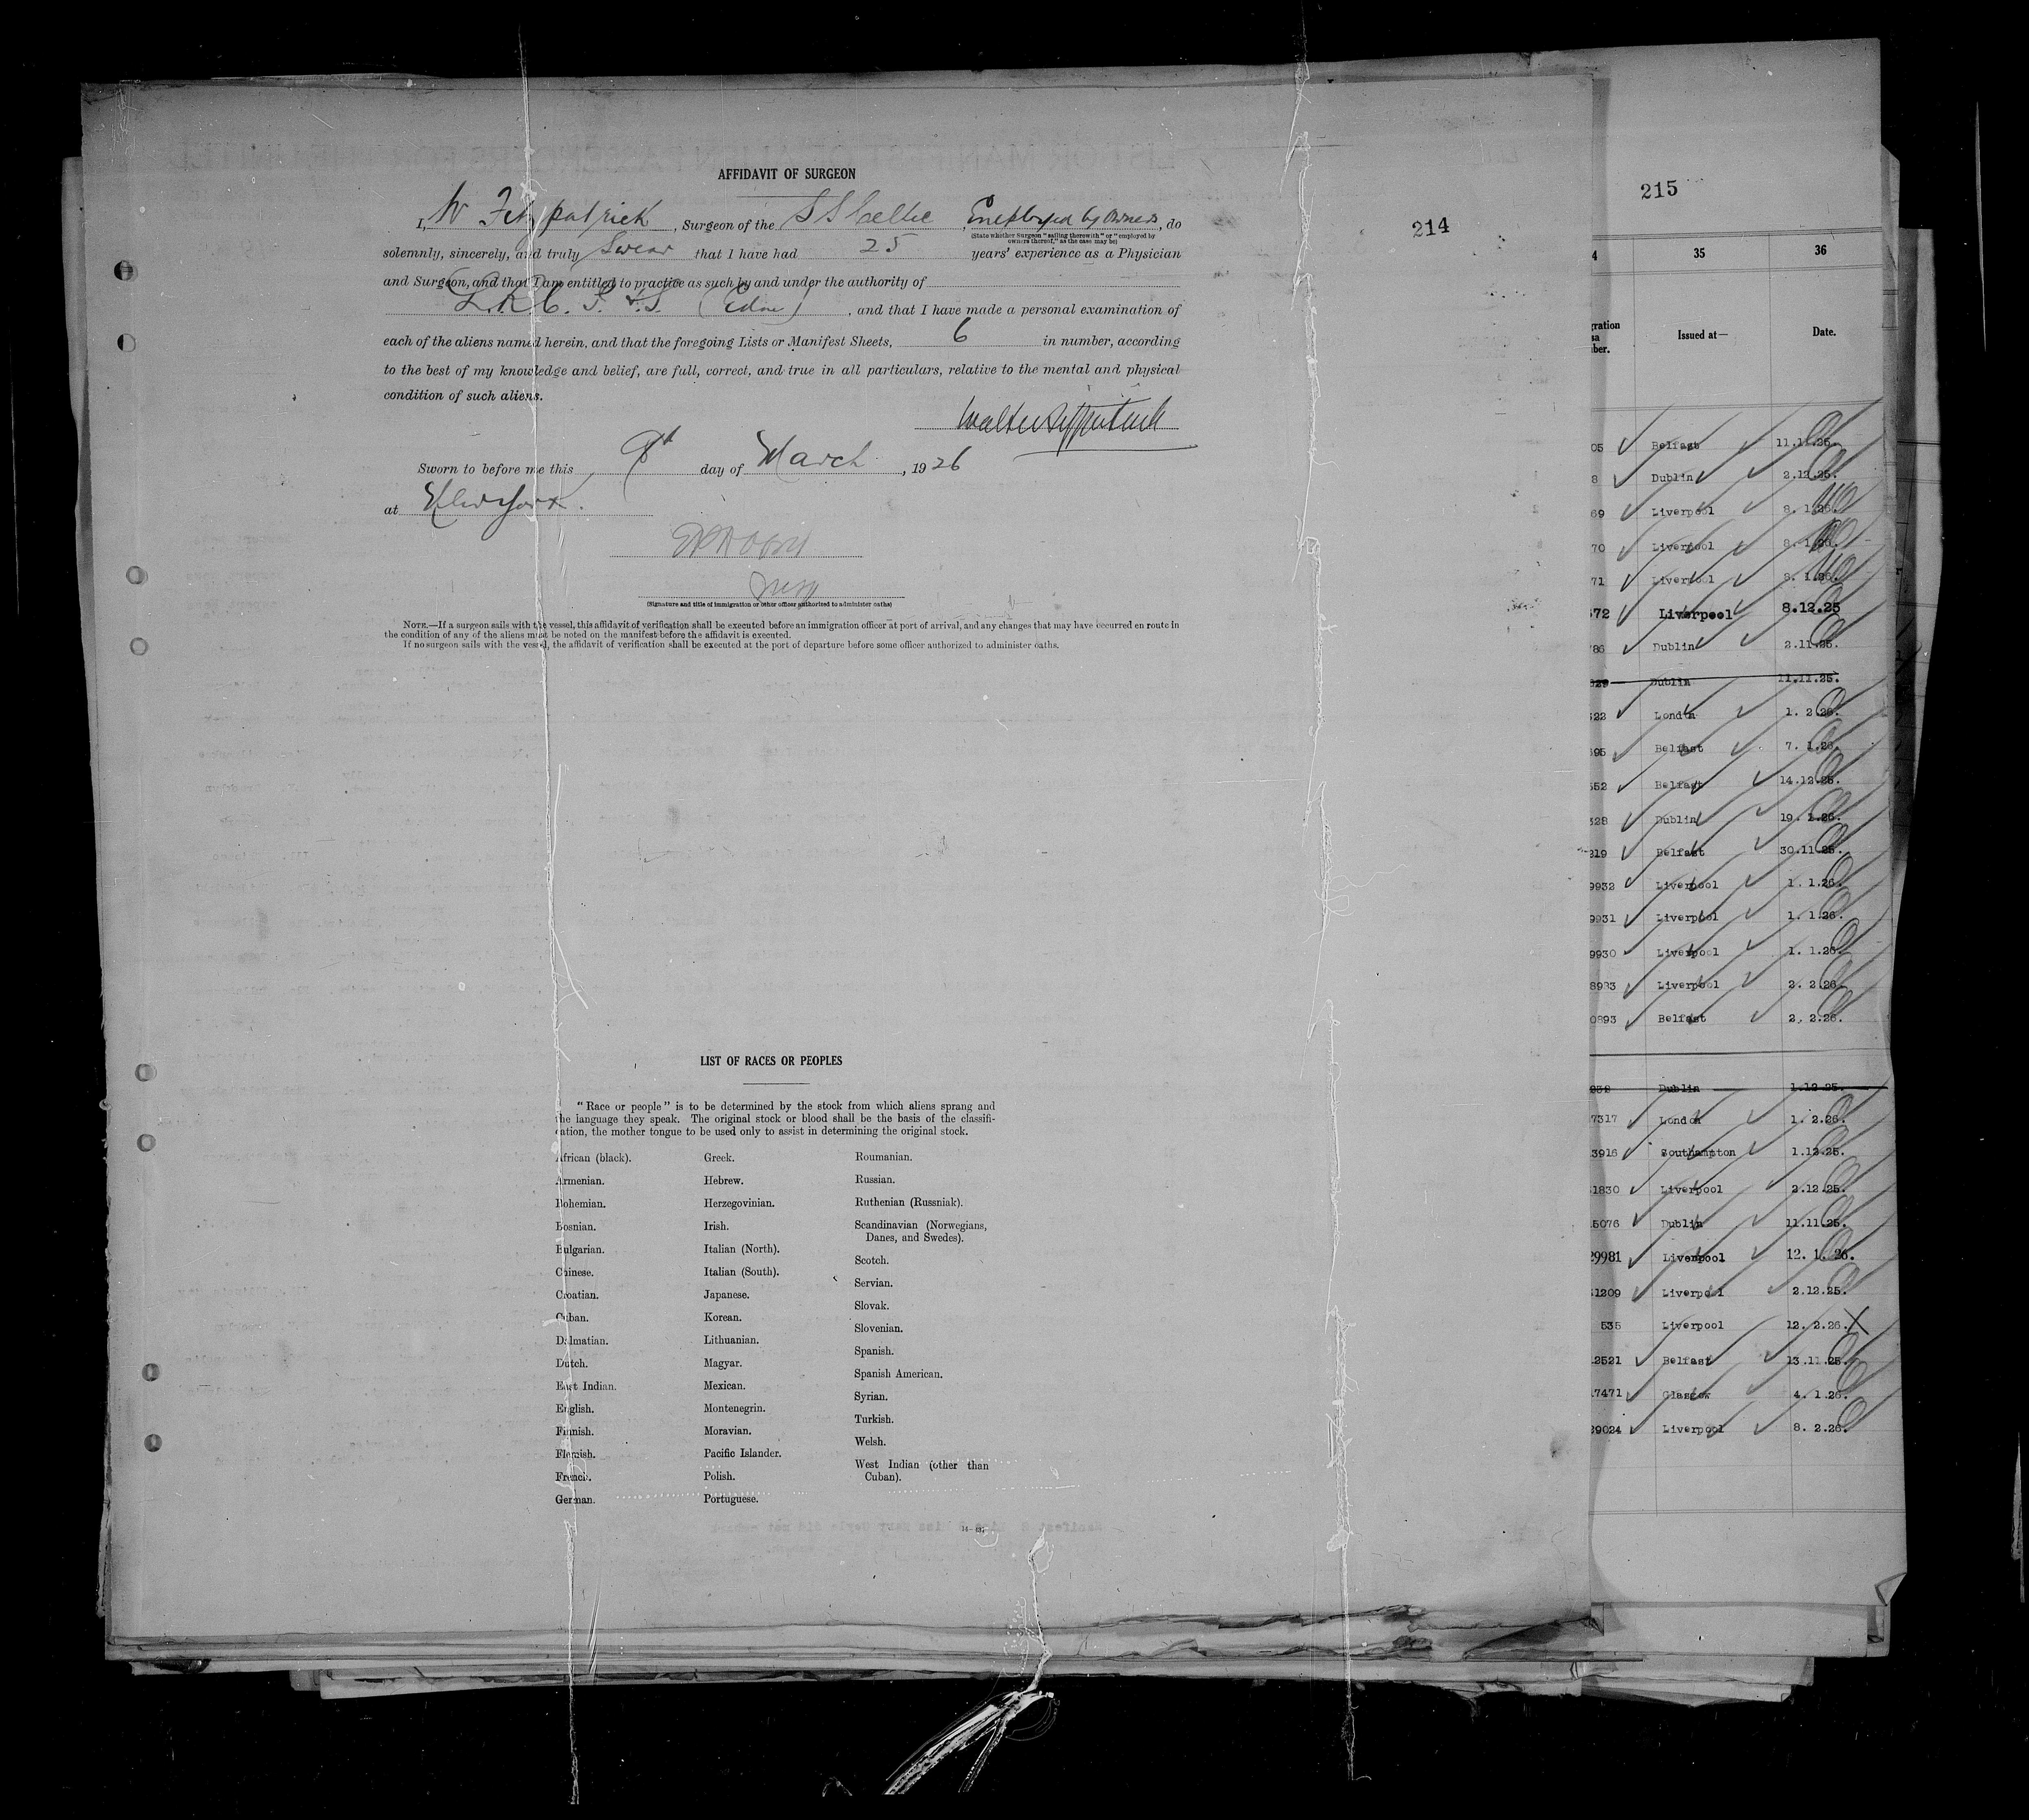 AFFIDAVIT OF SURGEON
I, W Fitzpatrick, Surgeon of the SS Celtic, Employed by Owners, do
(State whether Surgeon "sailing therewith" or "employed by
owners thereof," as the case may be)
solemnly, sincerely, and truly Swear that I have had 25 years' experience as a Physician
and Surgeon, and that I am entitled to practice as such by and under the authority of
L.R.C.P. & S. (Edin), and that I have made a personal examination of
each of the aliens named herein, and that the foregoing Lists or Manifest Sheets, 6 in number, according
to the best of my knowledge and belief, are full, correct, and true in all particulars, relative to the mental and physical
condition of such aliens.
Walter Fitzpatrick
Sworn to before me this day of March, 1926
at New York.
(Signature and title of immigration or other officer authorized to administer oaths)
NOTE.—If a surgeon sails with the vessel, this affidavit of verification shall be executed before an immigration officer at port of arrival, and any changes that may have occurred en route in
the condition of any of the aliens must be noted on the manifest before the affidavit is executed.
If no surgeon sails with the vessel, the affidavit of verification shall be executed at the port of departure before some officer authorized to administer oaths.
LIST OF RACES OR PEOPLES
"Race or people" is to be determined by the stock from which aliens sprang and
the language they speak. The original stock or blood shall be the basis of the classifi-
cation, the mother tongue to be used only to assist in determining the original stock.
African (black).
Armenian.
Bohemian.
Bosnian.
Bulgarian.
Chinese.
Croatian.
Cuban.
Dalmatian.
Dutch.
East Indian.
English.
Finnish.
Flemish.
French.
German.
Greek.
Hebrew.
Herzegovinian.
Irish.
Italian (North).
Italian (South).
Japanese.
Korean.
Lithuanian.
Magyar.
Mexican.
Montenegrin.
Moravian.
Pacific Islander.
Polish.
Portuguese.
Roumanian.
Russian.
Ruthenian (Russniak).
Scandinavian (Norwegians,
Danes, and Swedes).
Scotch.
Servian.
Slovak.
Slovenian.
Spanish.
Spanish American.
Syrian.
Turkish.
Welsh.
West Indian (other than
Cuban).
214
215
4 35 36
gration
sa
ber.
Issued at—
Date.
05 Belfast 11.11.25.
8 Dublin 2.12.25.
69 Liverpool 8. 1.26.
70 Liverpool 8. 1.26.
71 Liverpool 8. 1.26.
572 Liverpool 8.12.25
786 Dublin 2.11.25.
329 Dublin 11.11.25.
322 London 1. 2.26.
595 Belfast 7. 1.26.
552 Belfast 14.12.25.
328 Dublin 19. 1.26.
219 Belfast 30.11.25.
9932 Liverpool 1. 1.26.
9931 Liverpool 1. 1.26.
9930 Liverpool 1. 1.26.
8983 Liverpool 2. 2.26.
0893 Belfast 2. 2.26.
232 Dublin 1.12.25.
7317 London 1. 2.26.
3916 Southampton 1.12.25.
1830 Liverpool 2.12.25.
5076 Dublin 11.11.25.
29981 Liverpool 12. 1. 26.
1209 Liverpool 2.12.25.
535 Liverpool 12. 2.26. X
2521 Belfast 13.11.25.
7471 Glasgow 4. 1.26.
39024 Liverpool 8. 2.26.